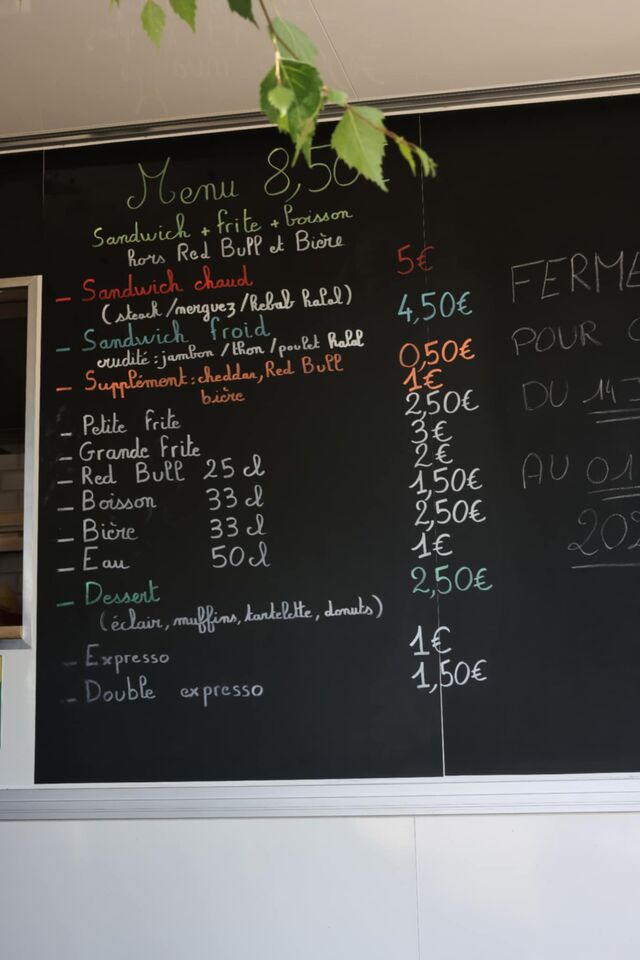 Menu 8,50
Sandwich + frite + boisson
hors Red Bull et Bière
- Sandwich chaud 5€
(steack/merguez/Kebab halal)
- Sandwich froid 4,50€
crudité : jambon/thon/poulet halal
- Supplément : cheddar, Red Bull 0,50€
bière 1€
- Petite frite 2,50€
- Grande frite 3€
- Red Bull 25 cl 2€
- Boisson 33 cl 1,50€
- Bière 33 cl 2,50€
- Eau 50 cl 1€
- Dessert 2,50€
(éclair, muffins, tartelette, donuts)
- Expresso 1€
- Double expresso 1,50€
FERME
POUR
DU 14
AU 01
202